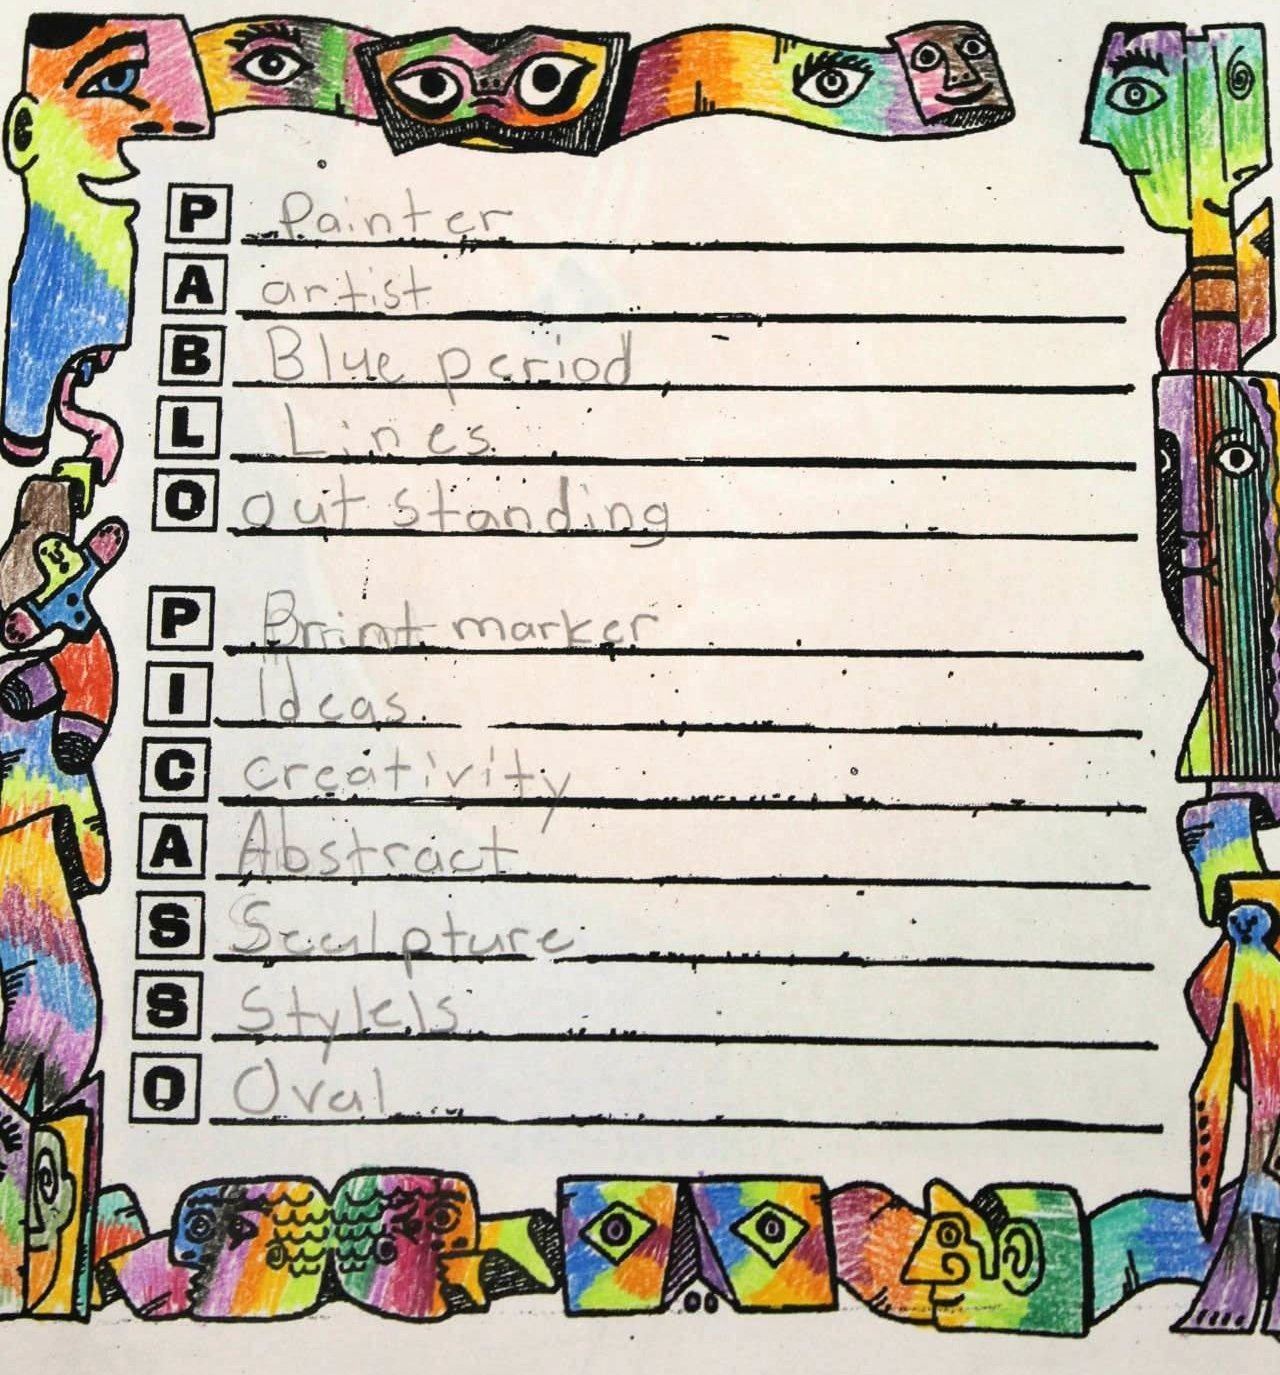 P Painter
A artist
B Blue period
L Lines
O out standing
P Print marker
I Ideas
C creativity
A Abstract
S Sculpture
S Stylels
O Oval